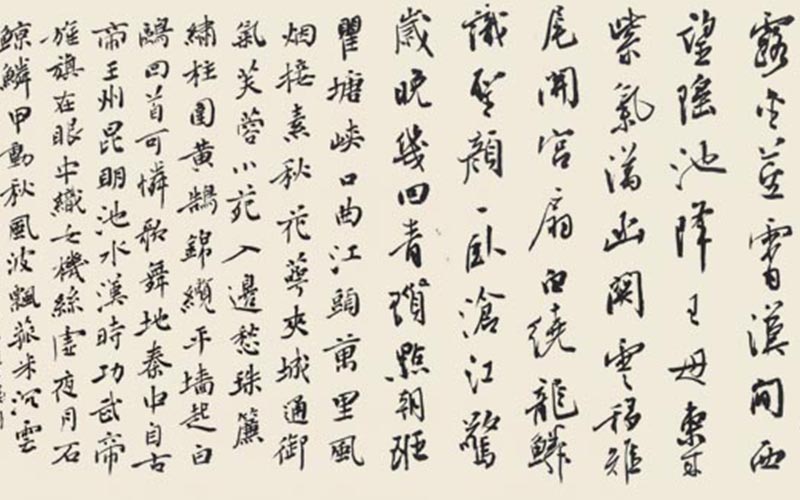 露金莖霄漢間西
望瑤池降王母東來
紫氣滿函關雲移雉
尾開宮扇日繞龍鱗
識聖顏一臥滄江驚
歲晚幾回青瑣點朝班
瞿塘峽口曲江頭萬里風
烟接素秋花萼夾城通御
氣芙蓉小苑入邊愁珠簾
繡柱圍黃鵠錦纜牙墙起白
鷗回首可憐歌舞地秦中自古
帝王州昆明池水漢時功武帝
旌旗在眼中織女機絲虛夜月石
鯨鱗甲動秋風波飄菰米沉雲